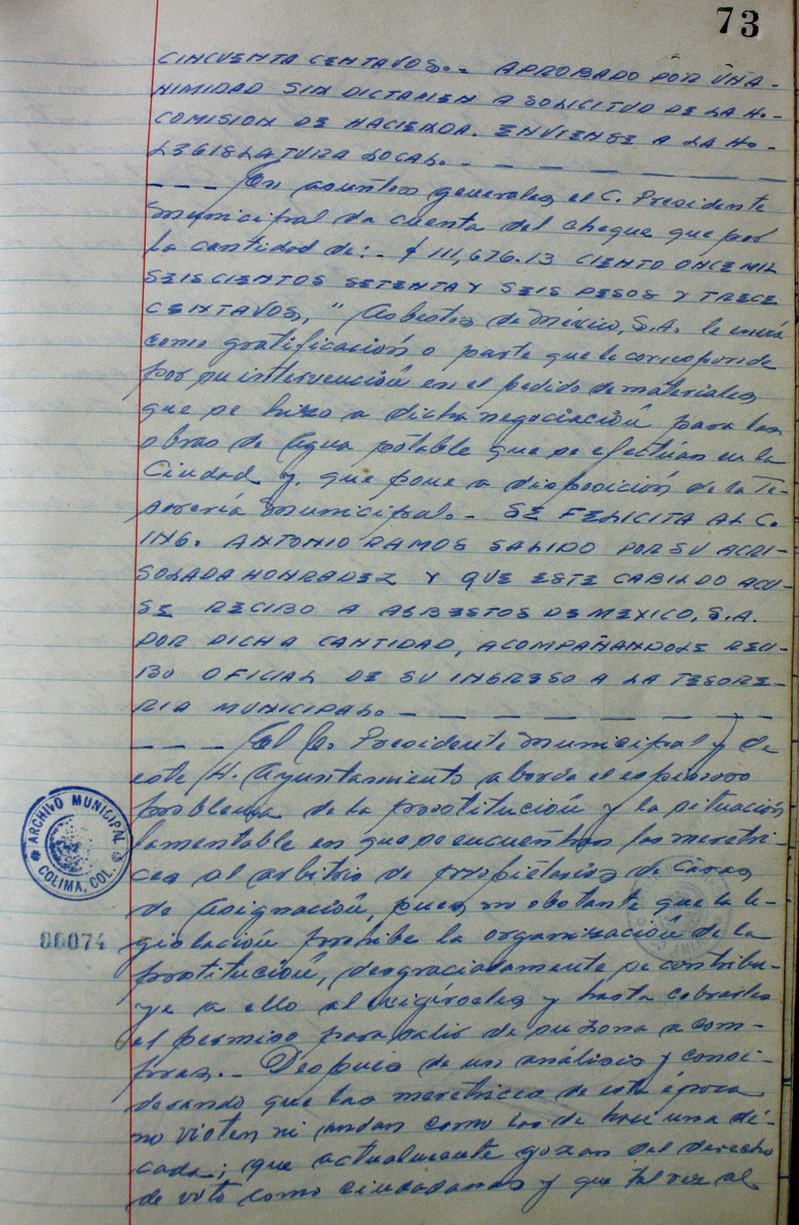 73
CINCUENTA CENTAVOS.- APROBADO POR UNA-
NIMIDAD SIN DICTAMEN A SOLICITUD DE LA H.-
COMISION DE HACIENDA. ENVIENSE A LA H.-
LEGISLATURA LOCAL. - - - - - -
- - - En asuntos generales el C. Presidente
Municipal da cuenta del cheque que por
la cantidad de:- $ 111,676.13 CIENTO ONCE MIL
SEISCIENTOS SETENTA Y SEIS PESOS Y TRECE
CENTAVOS, " Asbestos de México, S.A. le envía
como gratificación o parte que le corresponde
por su intervención en el pedido de materiales
que se hizo a dicha negociación para las
obras de Agua potable que se efectúan en la
Ciudad y, que pone a disposición de la Te-
sorería Municipal.- SE FELICITA AL C.
ING. ANTONIO RAMOS SALIDO POR SU ACRI-
SOLADA HONRADEZ Y QUE ESTE CABILDO ACU-
SE RECIBO A ASBESTOS DE MEXICO, S.A.
POR DICHA CANTIDAD, ACOMPAÑANDOLE RECI-
BO OFICIAL DE SU INGRESO A LA TESORE-
RIA MUNICIPAL. - - - - - - -
- - - El C. Presidente Municipal y de
este H. Ayuntamiento aborda el espinoso
problema de la prostitución y la situación
lamentable en que se encuentran las meretri-
ces al arbitrio de propietarios de Casas
de Asignación, pues no obstante que la le-
gislación prohibe la organización de la
prostitución, desgraciadamente se contribu-
ye a ello al exigírseles y hasta cobrarles
el permiso para salir de su zona a com-
pras.- Después de un análisis y consi-
derando que las meretrices de esta época
no visten ni andan como las de hace una dé-
cada; que actualmente gozan del derecho
de voto como ciudadanas y que tal vez al
ARCHIVO MUNICIPAL
COLIMA, COL.
00074